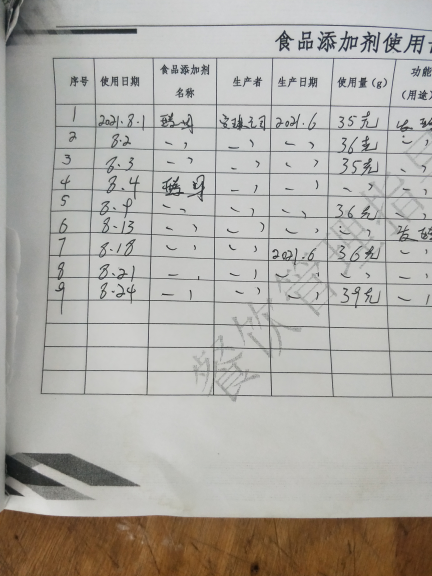 食品添加剂使用
序号 使用日期 食品添加剂名称 生产者 生产日期 使用量（g） 功能（用途）
1 2021.8.1 酵母 2021.6 35克
2 8.2 〃 〃 〃 36克 〃
3 8.3 〃 〃 〃 35克 〃
4 8.4 酵母 〃 〃 〃 〃
5 8.9 〃 〃 〃 36克 〃
6 8.13 〃 〃 〃 〃
7 8.18 〃 〃 2021.6 36克 〃
8 8.21 〃 〃 〃 〃 〃
9 8.24 〃 〃 〃 39克 〃
餐饮管理指